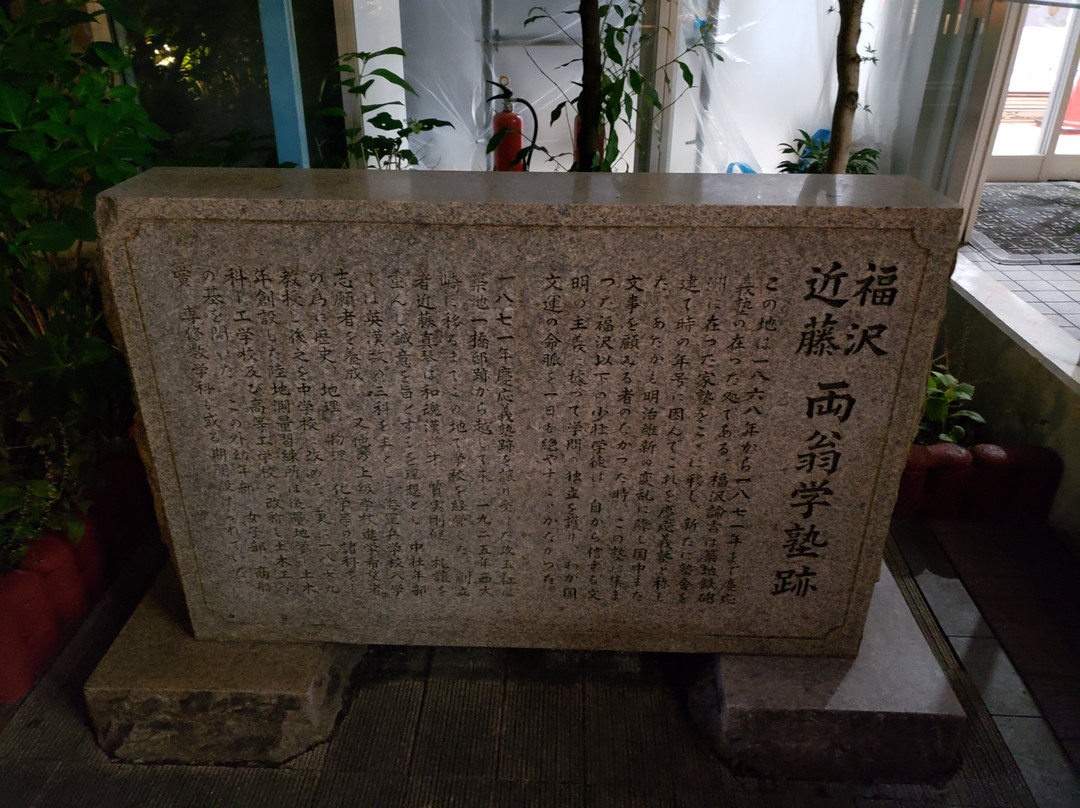 福沢
近藤
両翁学塾跡
この地は一八六八年から一八七一年まで慶応
義塾の在った処である。福沢諭吉は築地鉄砲
洲に在った家塾をここに移し、新たに塾舎を
建て時の年号に因んでこれを慶応義塾と称し
た。あたかも明治維新の変乱に際し国中また
文事を顧みる者のなかつた時、この塾に集ま
つた福沢以下の小壮学徒は、自から信ずる文
明の主義に據つて学問の独立を護り、わが国
文運の命脈を一日も絶やすことがなかつた。
一八七一年慶応義塾跡を譲り受けた攻玉社は
築地一橋邸跡から越して来、一九二五年西大
崎に移るまでこの地で学校を経営した。創立
者近藤真琴は和魂漢洋才、質実剛健、礼譲を
重んじ誠意を旨とするを理想とし、中壮年部
は英漢数の三科を主とし 兵学校入学
志願者を養成し、又他の上級学校進学希望者
の為に歴史、地理、物理、化学等の諸科を
教授し、後之を中学校に改めた。更に一八七九
年創設した陸地測量習練所は後量地黌、土木
科、工学校及び高等工学校と改称し土木工学
の基を開いた。この外幼年部、女学部、商船
黌、専修数学科も或る期間設けられていた。